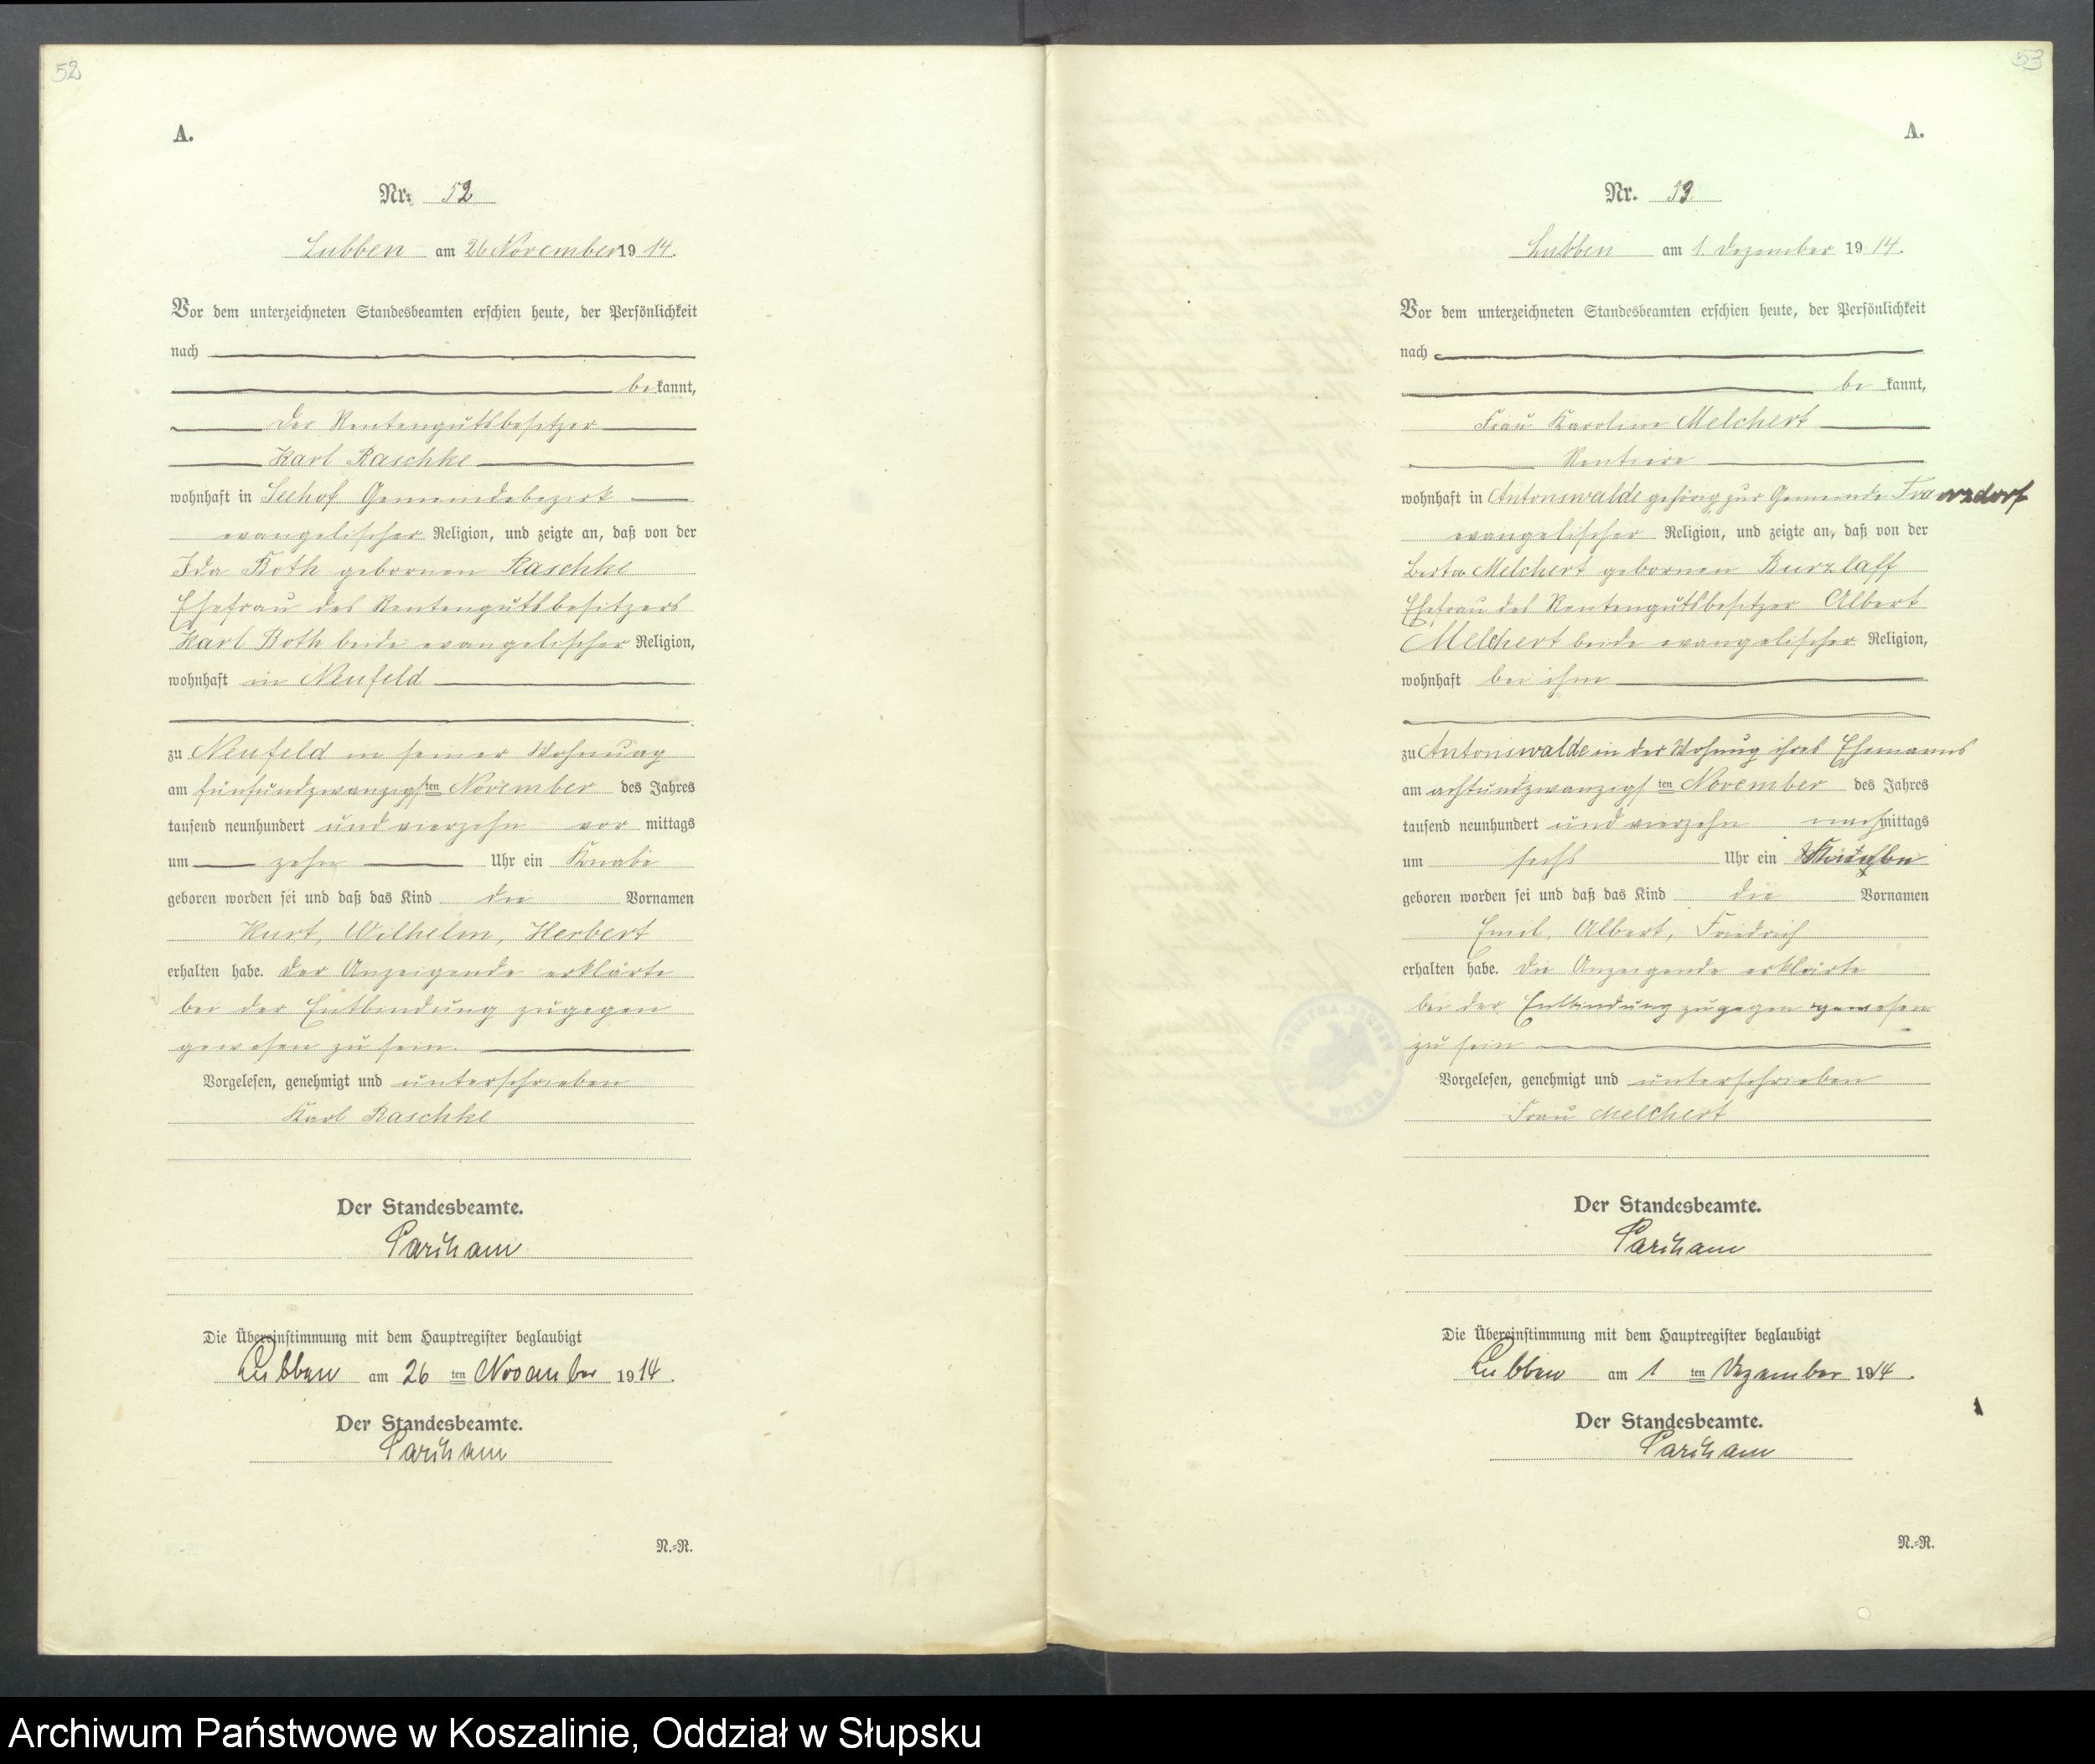 52
A.
Nr. 52
Lubben am 26 November 1914.
Vor dem unterzeichneten Standesbeamten erschien heute, der Persönlichkeit
nach
bekannt,
der Rentengutsbesitzer
Karl Raschke
wohnhaft in Seehof Gemeindebezirk
evangelischer Religion, und zeigte an, daß von der
Ida Both gebornen Raschke
Ehefrau des Rentengutsbesitzers
Karl Both beide evangelischer Religion,
wohnhaft in Neufeld
zu Neufeld in seiner Wohnung
am fünfundzwanzigsten November des Jahres
tausend neunhundert und vierzehn vor mittags
um zehn Uhr ein Knabe
geboren worden sei und daß das Kind die Vornamen
Kurt, Wilhelm, Herbert
erhalten habe. Der Anzeigende erklärte
bei der Entbindung zugegen
gewesen zu sein.
Vorgelesen, genehmigt und unterschrieben
Karl Raschke
Der Standesbeamte.
Die Übereinstimmung mit dem Hauptregister beglaubigt
Lubben am 26 ten November 1914.
Der Standesbeamte.
N.=R.
53
A.
Nr. 53
Lubben am 1. Dezember 1914.
Vor dem unterzeichneten Standesbeamten erschien heute, der Persönlichkeit
nach
be kannt,
Frau Karoline Melchert
Rentiere
wohnhaft in Antonswalde gehörig zur Gemeinde
evangelischer Religion, und zeigte an, daß von der
Berta Melchert gebornen Burzlaff
Ehefrau des Rentengutsbesitzer Albert
Melchert beide evangelischer Religion,
wohnhaft bei ihm
zu Antonswalde in der Wohnug ihres Ehemanns
am achtundzwanzigs ten November des Jahres
tausend neunhundert und vierzehn nachmittags
um sechs Uhr ein
geboren worden sei und daß das Kind die Vornamen
Emil, Albert, Friedrich
erhalten habe. Die Anzeigende erklärte
bei der Entbindung zugegen gewesen
zu sein
Vorgelesen, genehmigt und unterschrieben
Frau Melchert
Der Standesbeamte.
Die Übereinstimmung mit dem Hauptregister beglaubigt
Lubben am 1 ten Dezember 1914.
Der Standesbeamte.
N.=R.
Archiwum Państwowe w Koszalinie, Oddział w Słupsku